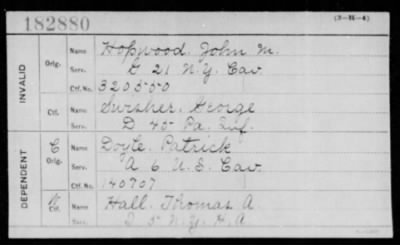 182880
(3-2
INVALID
Orig.
Name Hopwood, John M.
Serv. G 21 N.Y. Cav.
Ctf. No. 320550
Ctf.
Name George
Serv. D 45 Pa. Inf.
DEPENDENT
C
Orig.
Name Doyle, Patrick
Serv. A 6 U.S. Cav.
Ctf. No. 140707
Ctf.
Name Hall, Thomas A.
Serv. I 5 N.Y. H.A